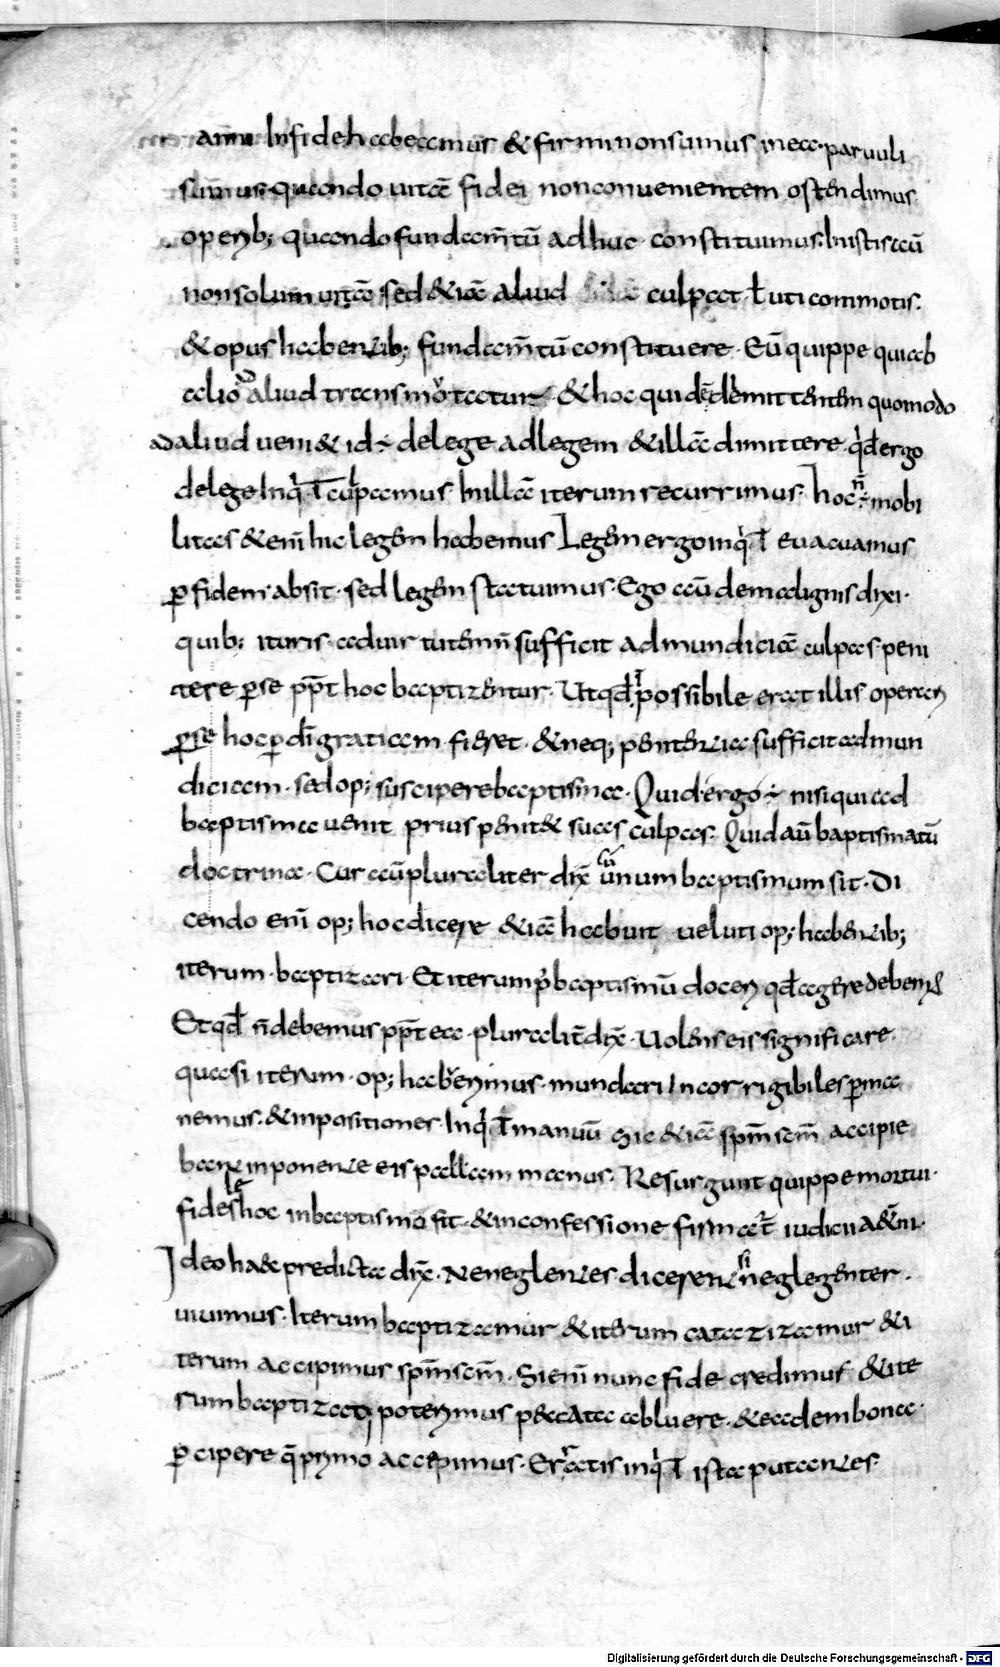 anni In fide habeamus & firmi non sumus in ea parvuli
sumus quando vitã fidei non convenientem ostendimus
operib; quando fundam̃tũ adhuc constituimus. In istis aũ
non solum vitã sed & iã aliud culpat · ł uti commotis.
& opus habentib; fundam̃tũ constituere · Eũ quippe qui ab
alio aliud transmotatur & hoc quidẽ demittentem quomodo
ad aliud veni& id ÷ de lege ad legem & illã dimittere · qd̃ ergo
de lege Inq̇ ł culpamus. In illã iterum recurrimus. hoc ñ ÷ mobi
litas & eni hic legem habemus Legem ergo inq̇ ł evacuamus
p fidem absit · sed legem statuimus · Ego aũ de malignis dixi ·
quib; ituris ad virtutem ñ sufficit ad mundiciã culpas peni
tere per se pp̃t hoc baptizentur. Ut qd̃ possibile erat illis operari
per se hoc per di gratiam fieret · & neq; penitentia sufficit ad mun
diciam · sed op; suscipere baptisma. Quid ergo ÷ nisi qui ad
baptisma venit prius penit& suas culpas. Quid aũ baptismatũ
doctrina · Cur aũ pluraliter dix̃ cũ unum baptismum sit · Di
cendo eni op; hoc dicere & iã habuit veluti op; habentib;
iterum · baptizari · Et iterum p̃ baptismũ docen qd̃ agere debem
Et qd̃ ñ debemus pp̃t ea · pluralit̃ dix̃ · Volens eis significare.
quasi iterum · op; haberemus · mundari Incorrigibiles perma
nemus. & impositiones · Inq̇ ł manuũ Sic & iã spm̃ scm̃ accipie
bant imponente eis paulam manus. Resurgunt quippe mortui ·
fides hoc in baptismo fit · & in confessione firmat̃ iudicii a&ñi ·
Ideo haec predicta dix̃. Ne neglentes · dicerent si neglegenter ·
vivimus · Iterum baptizamur & iterum catazizamur & i
terum accipimus spm̃ scm̃ · Si eni nunc fide credimus & ite
rum baptizati poterimus peccata abluere · & eadem bona ·
p cipere q̃ primo accepimus · Erratis inq̇ ł ista putantes